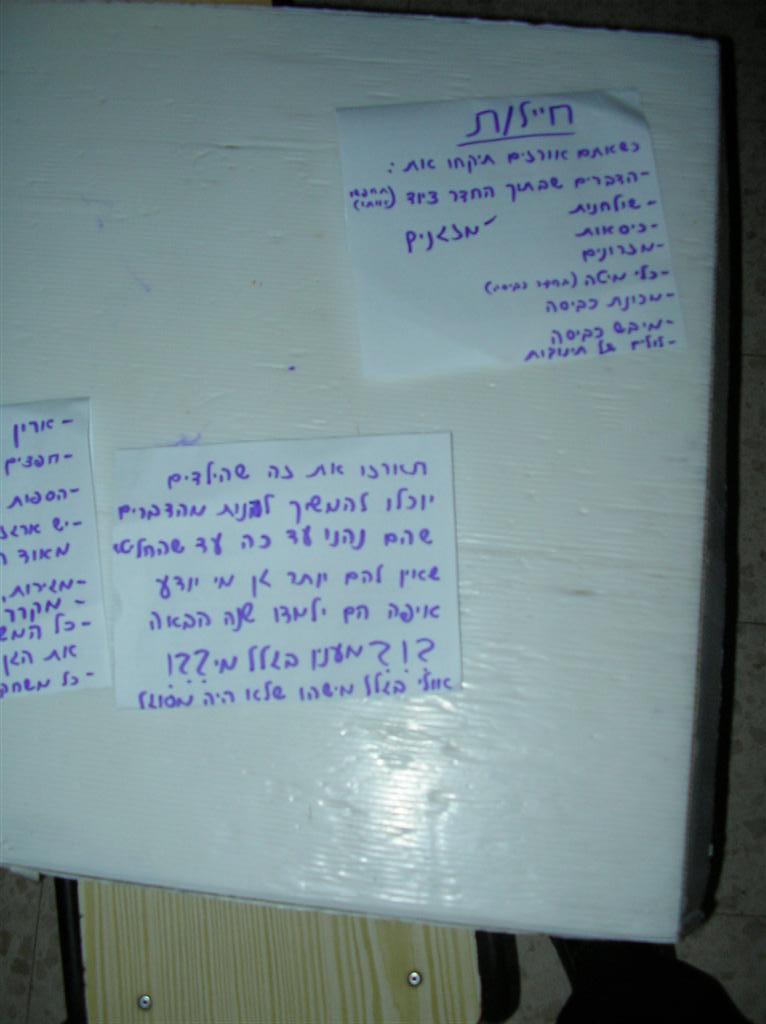 חייל/ת
כשאתם אורזים תיקחו את:
-הדברים שבתוך החדר ציוד
-שולחנות
-כיסאות
-מזגנים
-מזרונים
-כלי מיטה (בחדר כביסה)
-מכונת כביסה
-מיבש כביסה
-לולים של תינוקות
תארזו את זה שהילדים
יוכלו להמשיך להנות מהדברים
שהם נהנו עד כה עד שהחליטו
שאין להם יותר גן מי יודע
איפה הם ילמדו שנה הבאה
?!? מענין בגלל מי???!
אולי בגלל מישהו שלא היה מסוגל
-ארון
-חפצים
-הספות
-יש ארגז
מאוד
-מגירות,
-מקרר
-כל המש
את הגן
-כל משחק